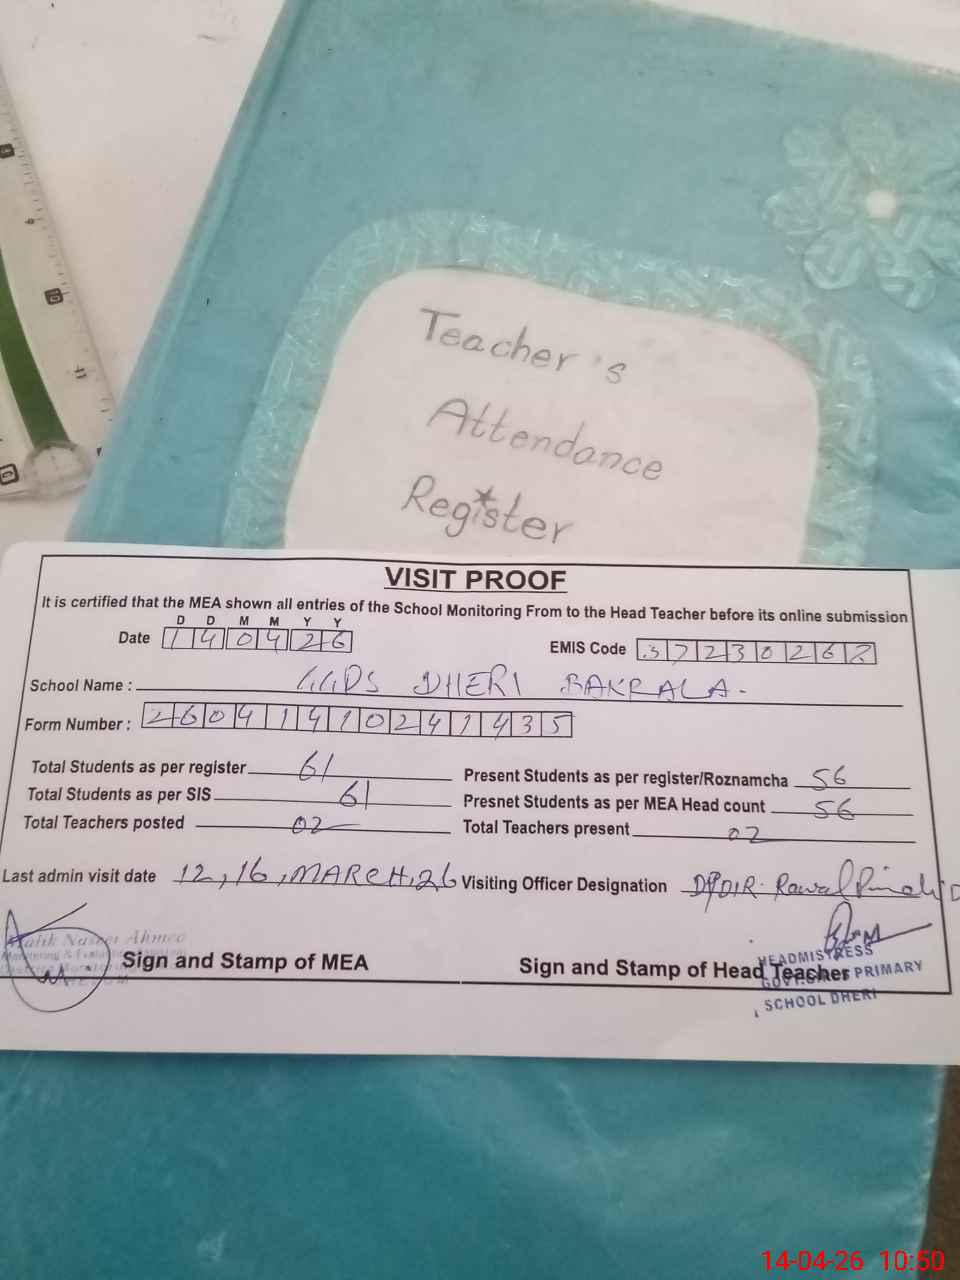 8
9
10
11
Teacher's
Attendance
Register
VISIT PROOF
It is certified that the MEA shown all entries of the School Monitoring From to the Head Teacher before its online submission
D D M M Y Y
Date 140426 EMIS Code 37230262
School Name : GGPS DHERI BAKRALA.
Form Number : 26041410241435
Total Students as per register 61 Present Students as per register/Roznamcha 56
Total Students as per SIS 61 Presnet Students as per MEA Head count 56
Total Teachers posted 02 Total Teachers present 02
Last admin visit date 12, 16, MARCH, 26 Visiting Officer Designation
Malik Naseer Ahmed
Sign and Stamp of MEA
Sign and Stamp of Head Teacher
HEADMISTRESS
GOVT. GIRLS PRIMARY
SCHOOL DHERI
14-04-26 10:50